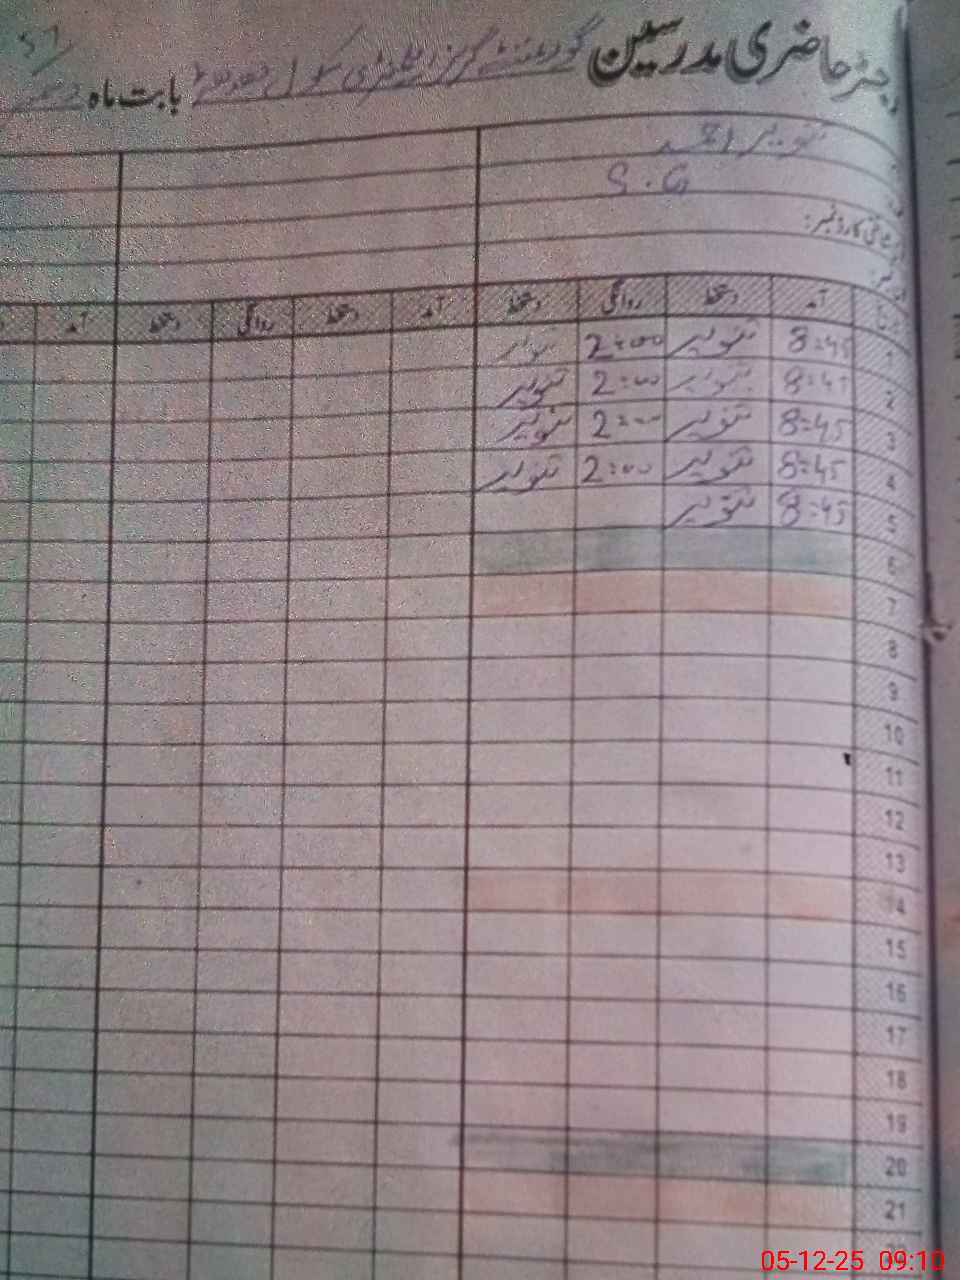 رجسٹر حاضری مدرسین گورنمنٹ گرلز ایلیمنٹری سکول بابت ماہ دسمبر
تنویر احمد
S.G
شناختی کارڈ نمبر:
آمد دستخط روانگی دستخط آمد دستخط روانگی دستخط آمد
1 8:45 تنویر 2:00 تنویر
2 8:45 تنویر 2:00 تنویر
3 8:45 تنویر 2:00 تنویر
4 8:45 تنویر 2:00 تنویر
5 8:45 تنویر
6
7
8
9
10
11
12
13
14
15
16
17
18
19
20
21
05-12-25 09:10